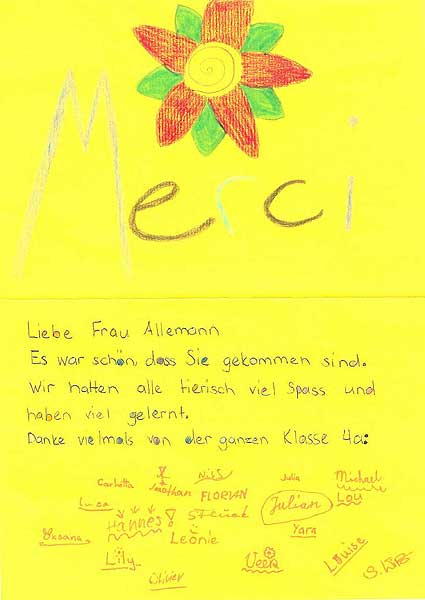 Merci
Liebe Frau Allemann
Es war schön, dass Sie gekommen sind.
Wir hatten alle tierisch viel Spass und
haben viel gelernt.
Danke vielmals von der ganzen Klasse 4a:
Carlotta Jonathan Nils Julia Michael
Luca FLORIAN Julian Lou
Hannes! Yara
Oksana Leonie
Lily Veera Louise
Olivier